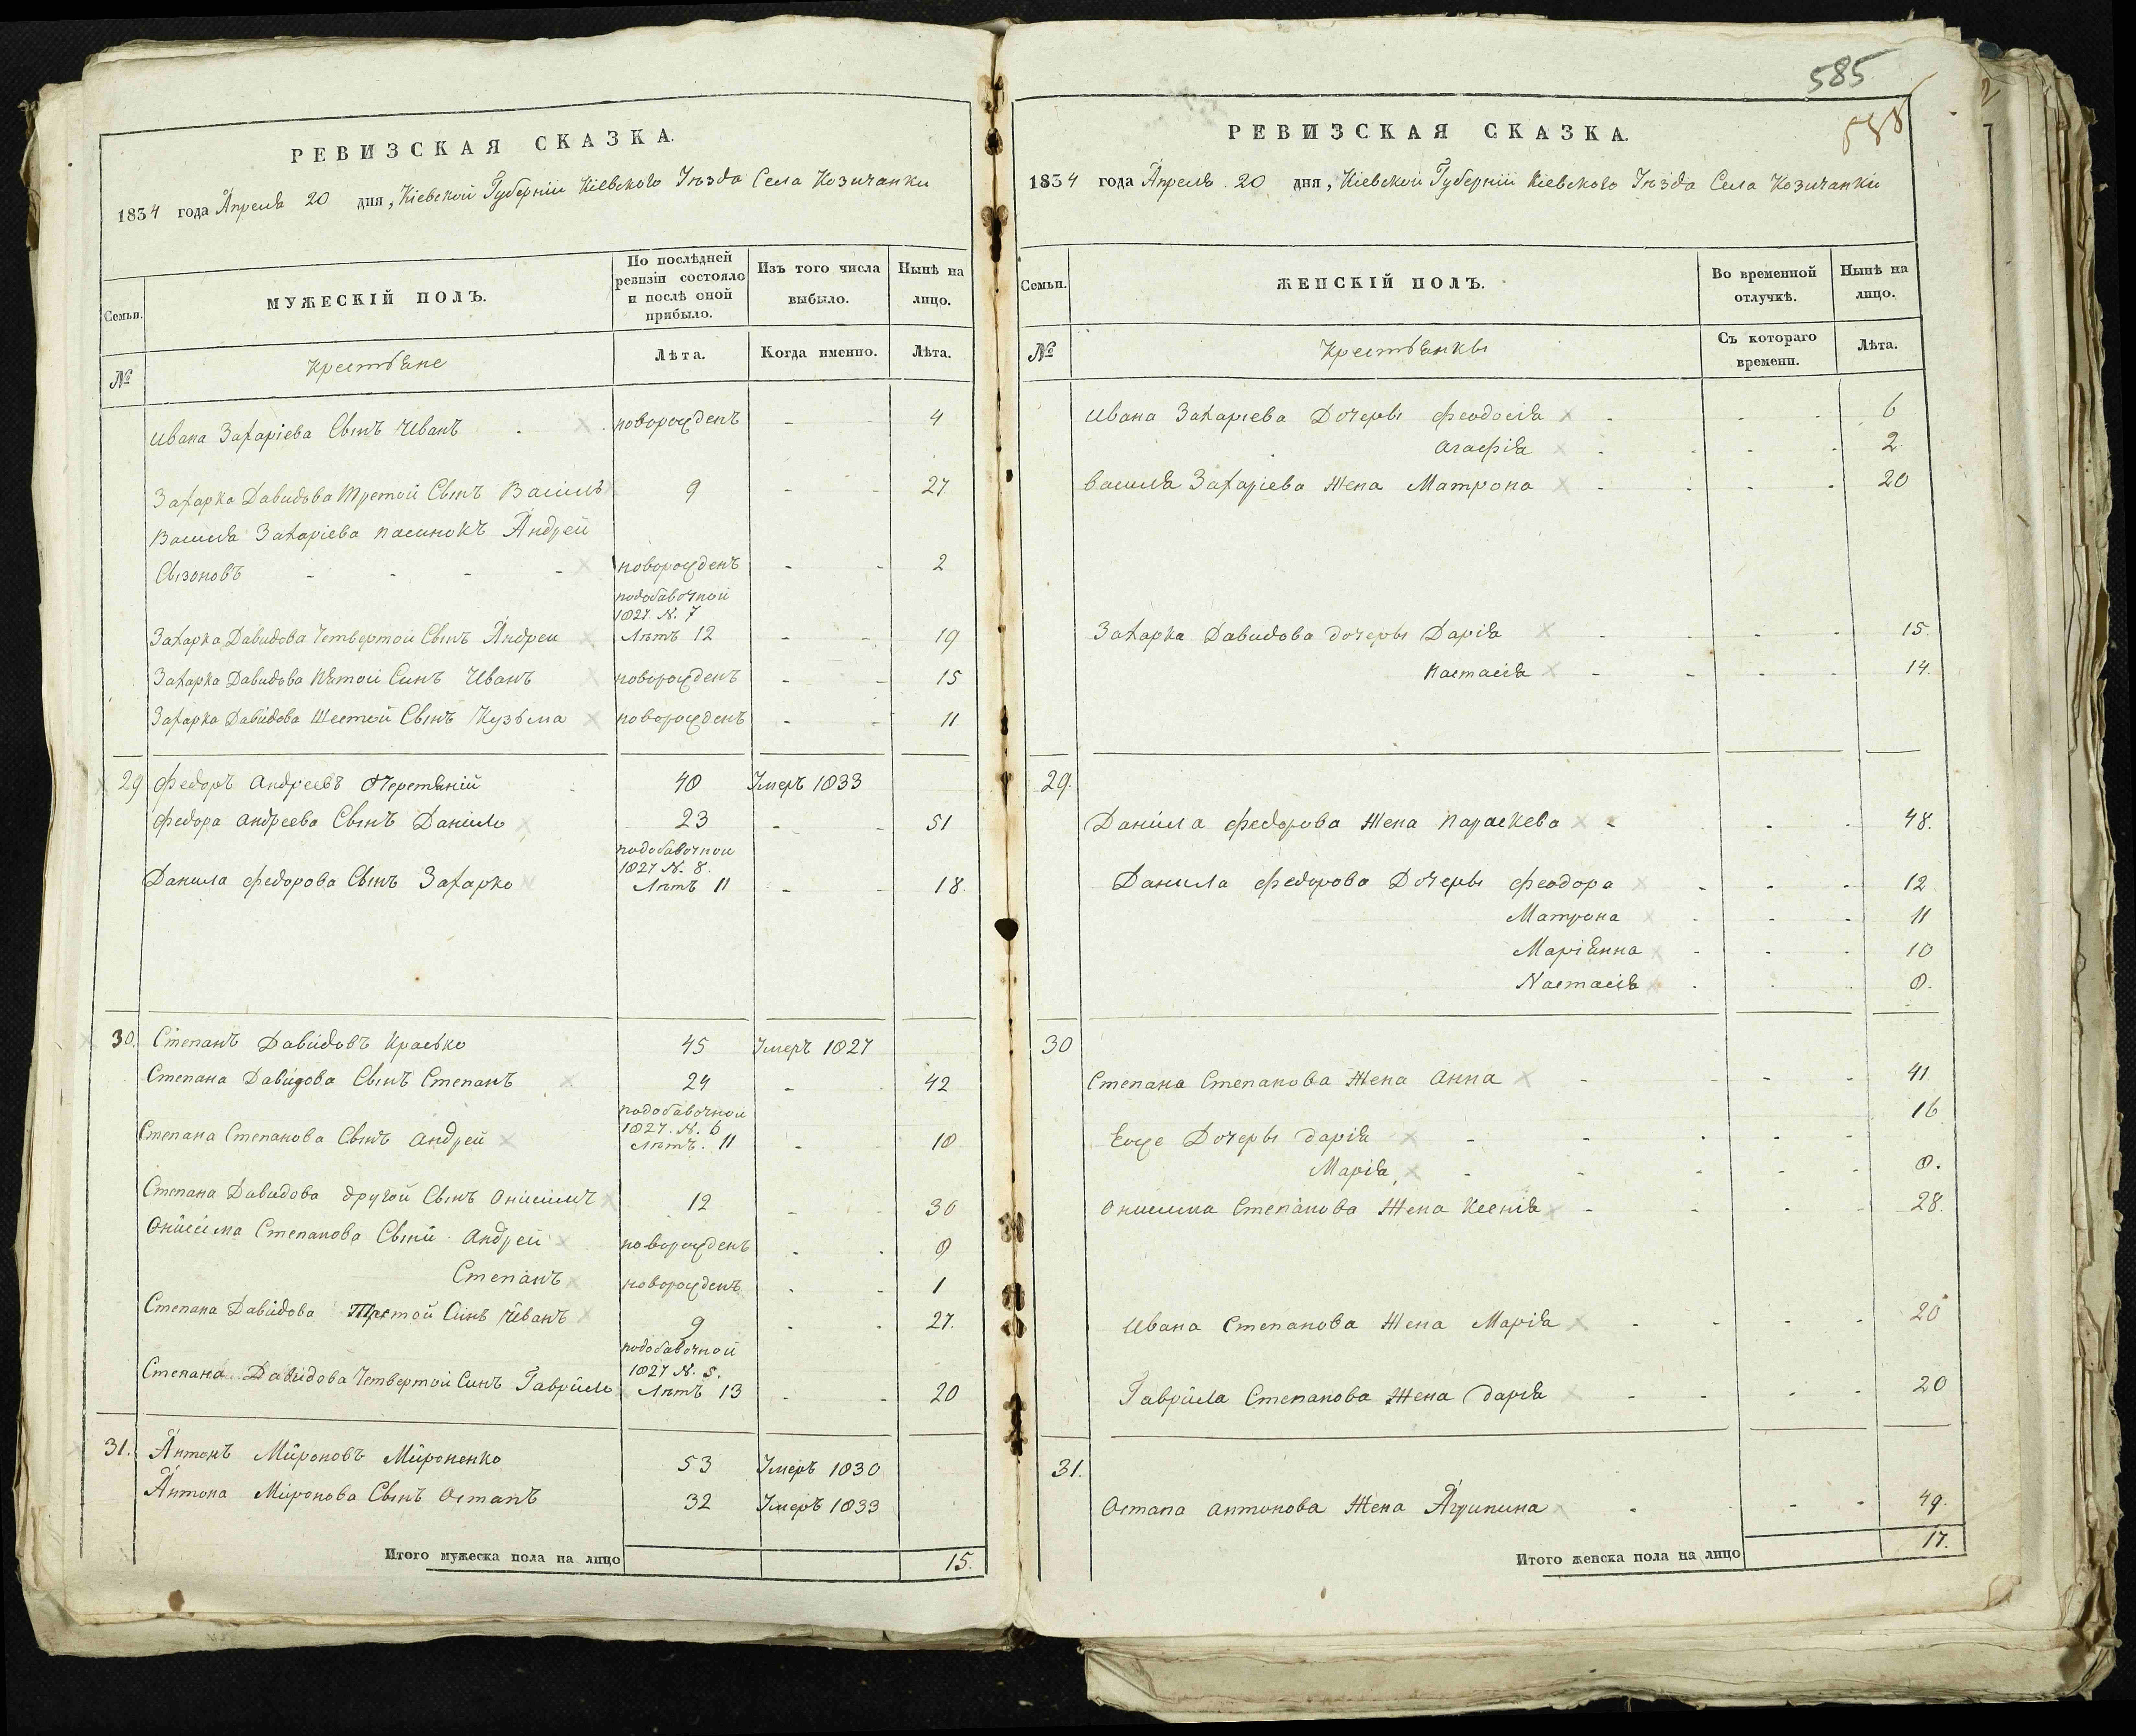 РЕВИЗСКАЯ СКАЗКА.
1834 года Апреля 20 дня, Кіевской Губерніи Кіевского Уезда Села Козичанки
Семьи.
МУЖЕСКІЙ ПОЛЪ.
По послѣдней ревизіи состояло и послѣ оной прибыло.
Изъ того числа выбыло.
Нынѣ на лицо.
№
Крестьяне
Лѣта.
Когда именно.
Лѣта.
Ивана Захаріева Сынъ Иванъ новорожденъ - - 4
Захарка Давидова Третой Сынъ Василь 9 - - 27
Василя Захаріева пасинокъ Андрей
Сызоновъ - - - - новорожденъ - - 2
подобавочной
1827 N. 7
Захарка Давидова Четвертой Сынъ Андреи Лѣтъ 12 - - 19
Захарка Давидова Пятои Синъ Иванъ новорожденъ - - 15
Захарка Давидова Шестой Сынъ Кузьма новорожденъ - - 11
29 Федоръ Андреевъ Очеретяній 40 Умеръ 1833
Федора Андреева Сынъ Даніило 23 - - 51
подобавочнои
1827 N. 8.
Данила Федорова Сынъ Захарко Лѣтъ 11 - - 18.
30. Степанъ Давидовъ Красько 45 Умеръ 1827
Степана Давидова Сынъ Степанъ 24 - - 42
подобавочнои
1827. N. 6
Степана Степанова Сынъ Андрей Лѣтъ. 11 - - 18
Степана Давидова другой Сынъ Онисимъ 12 - - 30
Онисима Степанова Сыни Андреи новорожденъ - - 8
Степанъ новорожденъ - - 1
Степана Давидова Третой Синъ Иванъ 9 - - 27.
подобавочной
1827 N. 5.
Степана Давидова Четвертой Синъ Гаврило Лѣтъ 13 - - 20
31. Антонъ Мироновъ Мироненко 53 Умеръ 1830
Антона Миронова Сынъ Остапъ 32 Умеръ 1833
Итого мужеска пола на лицо 15.
585
588
РЕВИЗСКАЯ СКАЗКА.
1834 года Апреля 20 дня, Кіевской Губерніи Кіевского Уезда Села Козичанки
Семьи.
ЖЕНСКІЙ ПОЛЪ.
Во временной отлучкѣ.
Нынѣ на лицо.
№
Крестьянкы
Съ котораго времени.
Лѣта.
Ивана Захаріева Дочеры Феодосія - - - 6
Агафія - - - 2
Василя Захаріева Жена Матрона - - - 20
Захарка Давидова дочеры Дарія - - - 15.
Настасія - - - 14.
29.
Даніила Федорова Жена Параскева - - - 48.
Данила Федорова Дочеры Феодора - - - 12
Матрона - - - 11
Маріянна - - - 10
Настасія - - - 8.
30
Степана Степанова Жена Анна - - - 41
Еще Дочеры дарія - - - 16
Марія - - - 8.
Онисима Степанова Жена Ксенія - - - 28.
Ивана Степанова Жена Марія - - - 20
Гаврила Степанова Жена дарія - - - 20
31.
Остапа Антонова Жена Агрипина - - - 49.
Итого женска пола на лицо 17.